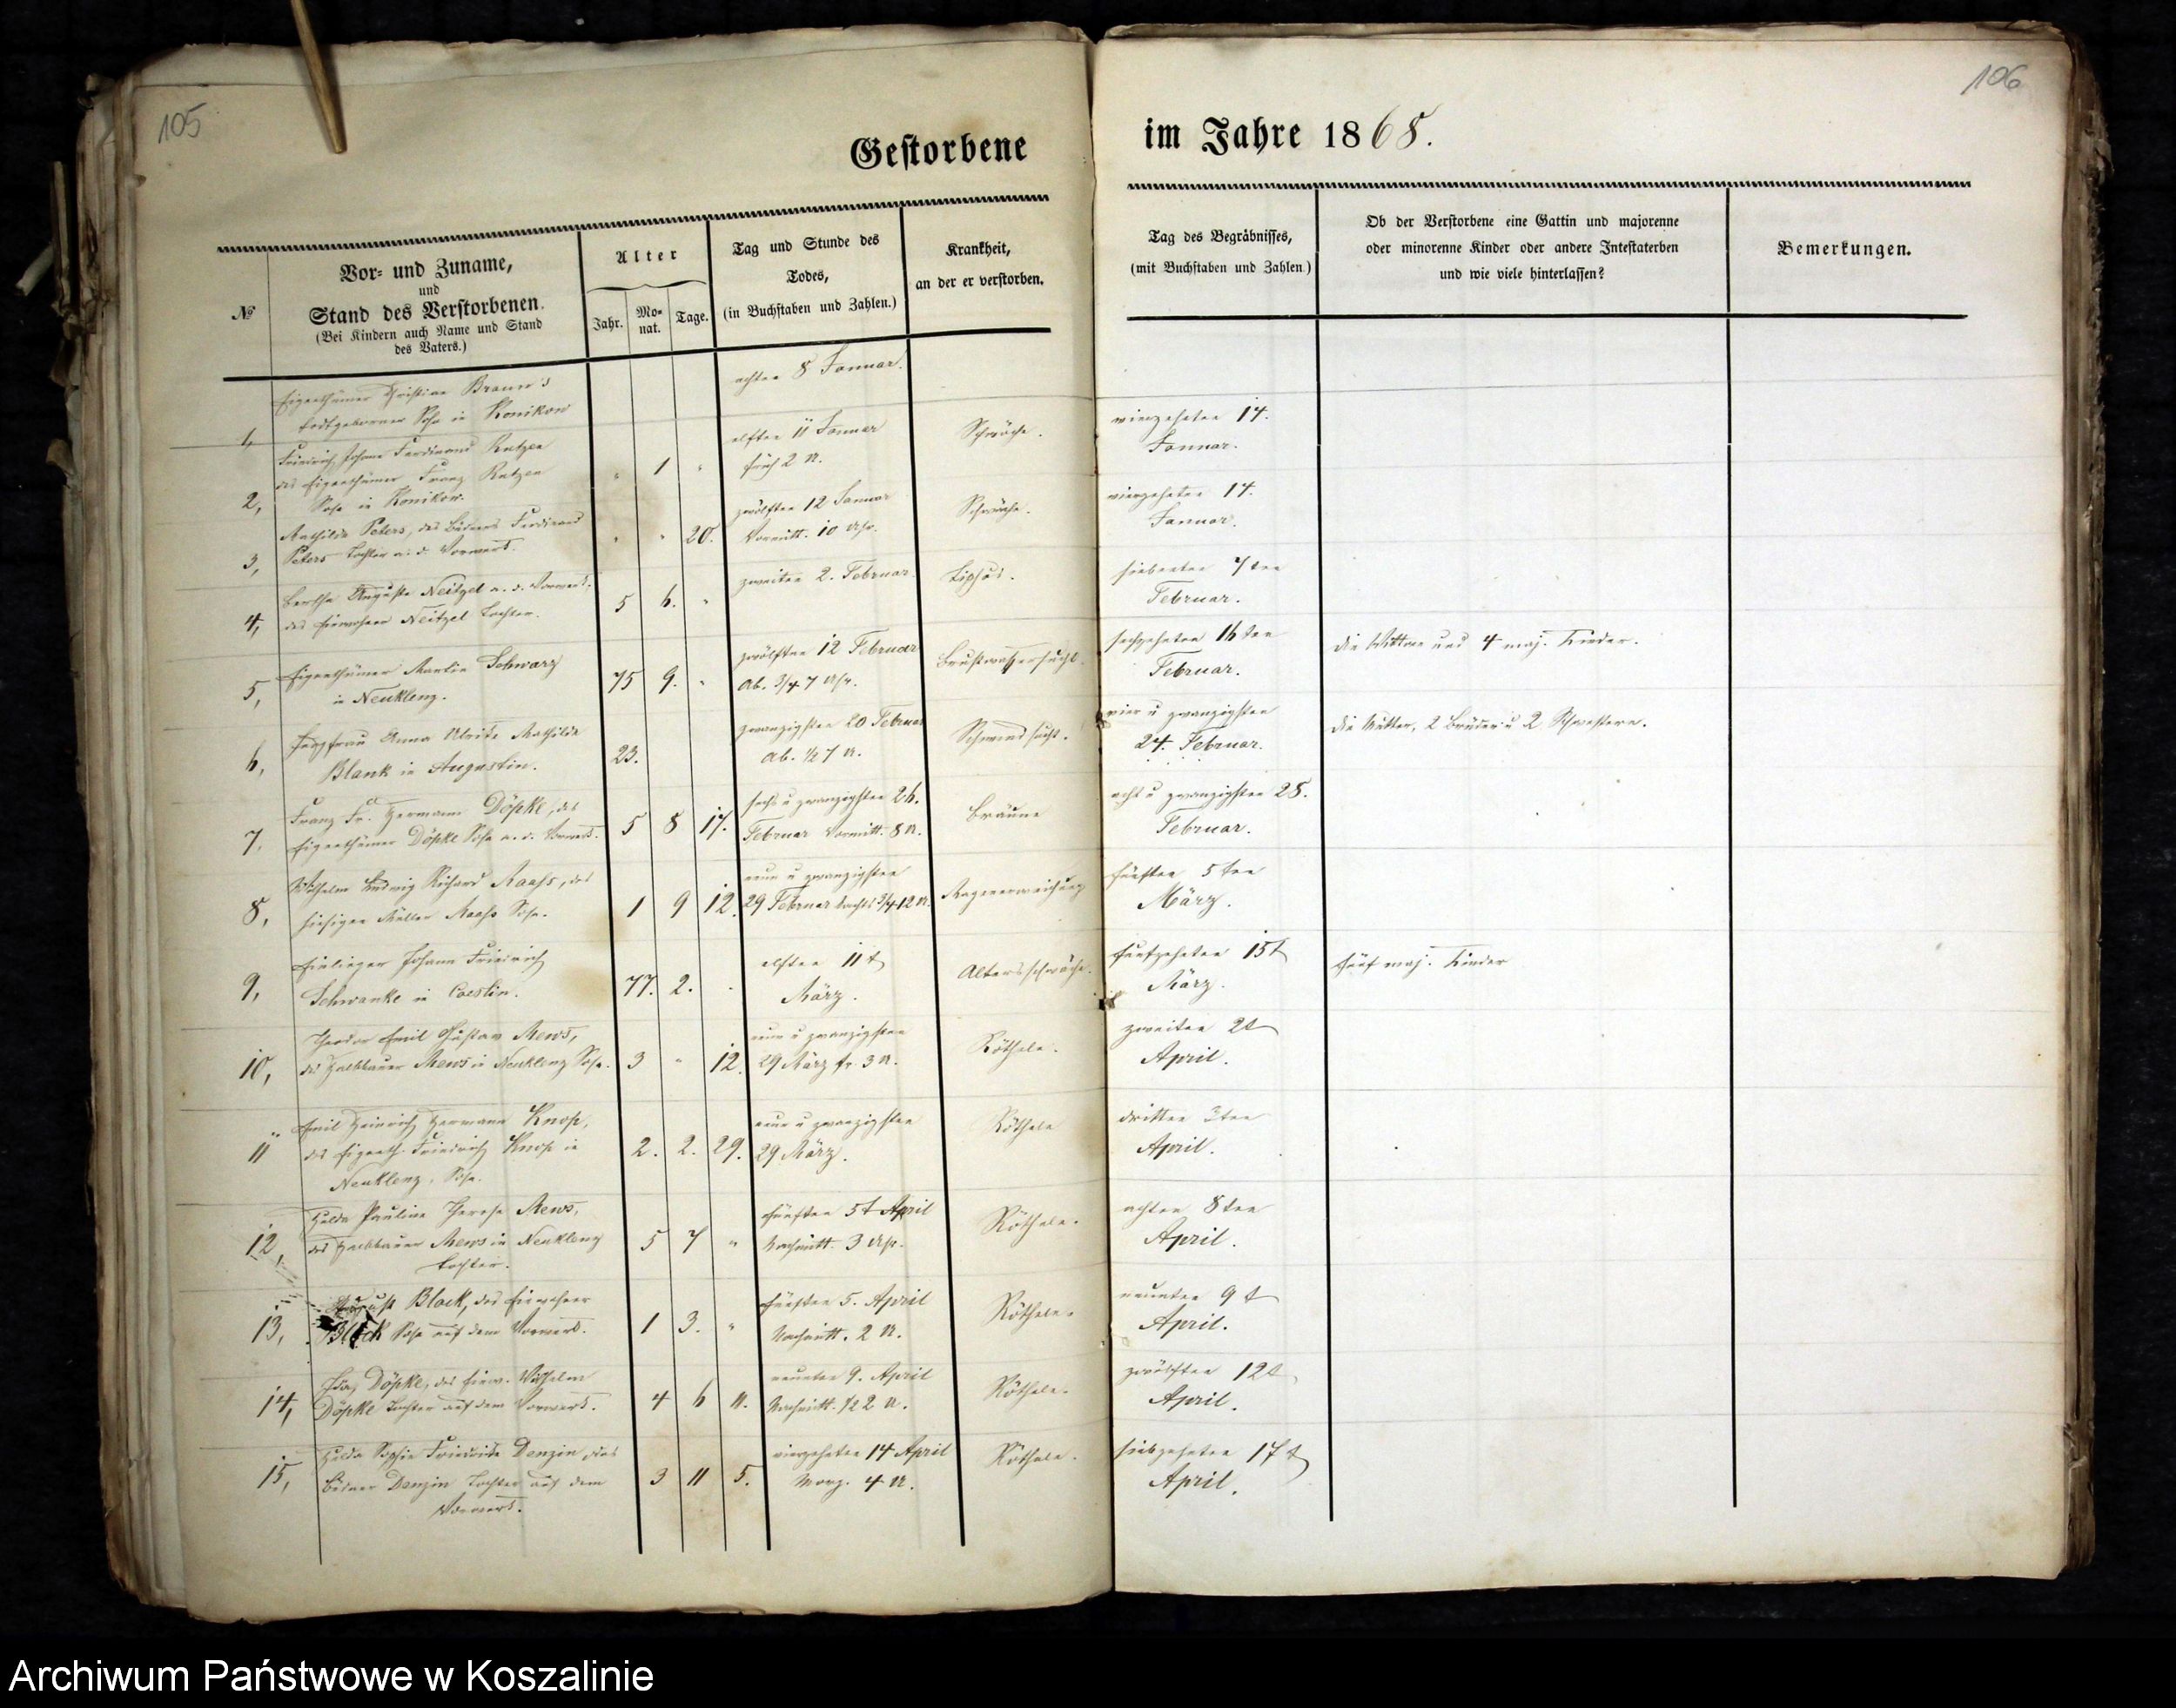 105
106
Gestorbene
im Jahre 1868.
№
Vor- und Zuname,
und
Stand des Verstorbenen.
(Bei Kindern auch Name und Stand
des Vaters.)
Alter
Jahr.
Mo-
nat.
Tage.
Tag und Stunde des
Todes,
(in Buchstaben und Zahlen.)
Krankheit,
an der er verstorben.
Tag des Begräbnisses,
(mit Buchstaben und Zahlen.)
Ob der Verstorbene eine Gattin und majorenne
oder minorenne Kinder oder andere Intestaterben
und wie viele hinterlassen?
Bemerkungen.
1,
Eigenthümer Christian Braun's
todtgeborener Sohn in Konikow
achten 8 Januar.
2,
Friedrich Johann Ferdinand Ratzen
des Eigenthümer Franz Ratzen
Sohn in Konikow.
" 1 "
elften 11 Januar
früh 2 U.
Schwäche.
vierzehnten 14.
Januar.
3,
Mathilde Peters, des Büdners Ferdinand
Peters Tochter a. d. Vorwerk.
" " 20.
zwölften 12 Januar
Vormitt. 10 Uhr.
Schwäche.
vierzehnten 14.
Januar.
4,
Bertha Auguste Neitzel a. d. Vorwerk,
des Einwohner Neitzel Tochter.
5 6. "
zweiten 2. Februar.
Tiphus.
siebenten 7ten
Februar.
5,
Eigenthümer Martin Schwarz
in Neuklenz.
75 9. "
zwölften 12 Februar
Ab. 3/4 7 Uhr.
Brustwassersucht.
sechzehnten 16ten
Februar.
die Wittwe und 4 maj. Kinder.
6,
Jungfrau Anna Ulrike Mathilde
Blank in Augustin.
23.
zwanzigsten 20 Februar
Ab. 1/2 7 U.
Schwindsucht.
vier u zwanzigsten
24. Februar.
die Mutter, 2 Brüder u 2 Schwestern.
7.
Franz Fr. Hermann Döpke, des
Eigenthümer Döpke Sohn a. d. Vorwerk.
5 8 17.
sechs u zwanzigsten 26.
Februar Vormitt. 8 U.
Bräune
acht u zwanzigsten 28.
Februar.
8,
Wilhelm Ludwig Richard Raasß, des
hiesigen Müller Raasß Sohn.
1 9 12.
neun u zwanzigsten
29 Februar Nachts 3/4 12 U.
Magenerweichung
fünften 5ten
März.
9,
Einlieger Johann Friedrich
Schwanke in Coeslin.
77. 2. .
elften 11t
März.
Altersschwäche.
funfzehnten 15t
März.
fünf maj. Kinder
10,
Theodor Emil Gustav Mews,
des Halbbauer Mews in Neuklenz Sohn.
3 " 12.
neun u zwanzigsten
29 März fr. 3 U.
Rötheln.
zweiten 2t
April.
11
Emil Heinrich Hermann Knop,
des Eigenth. Friedrich Knop in
Neuklenz, Sohn.
2. 2. 29.
neun u zwanzigsten
29 März.
Rötheln
dritten 3ten
April.
12,
Hulda Pauline Therese Mews,
des Halbbauer Mews in Neuklenz
Tochter.
5 7 "
fünften 5t April
Nachmitt. 3 Uhr.
Rötheln.
achten 8ten
April.
13,
August Block, des Einwohner
Block Sohn auf dem Vorwerk.
1 3. "
fünften 5. April
Nachmitt. 2 U.
Rötheln.
neunten 9t
April.
14,
Ida Döpke, des Einw. Wilhelm
Döpke Tochter auf dem Vorwerk.
4 6 11.
neunten 9. April
Nachmitt. 1/2 2 U.
Rötheln.
zwölften 12t
April.
15,
Hulda Sophie Friederike Denzin, des
Büdner Denzin Tochter auf dem
Vorwerk.
3 11 5.
vierzehnten 14 April
Morg. 4 U.
Rötheln.
siebzehnten 17t
April.
Archiwum Państwowe w Koszalinie